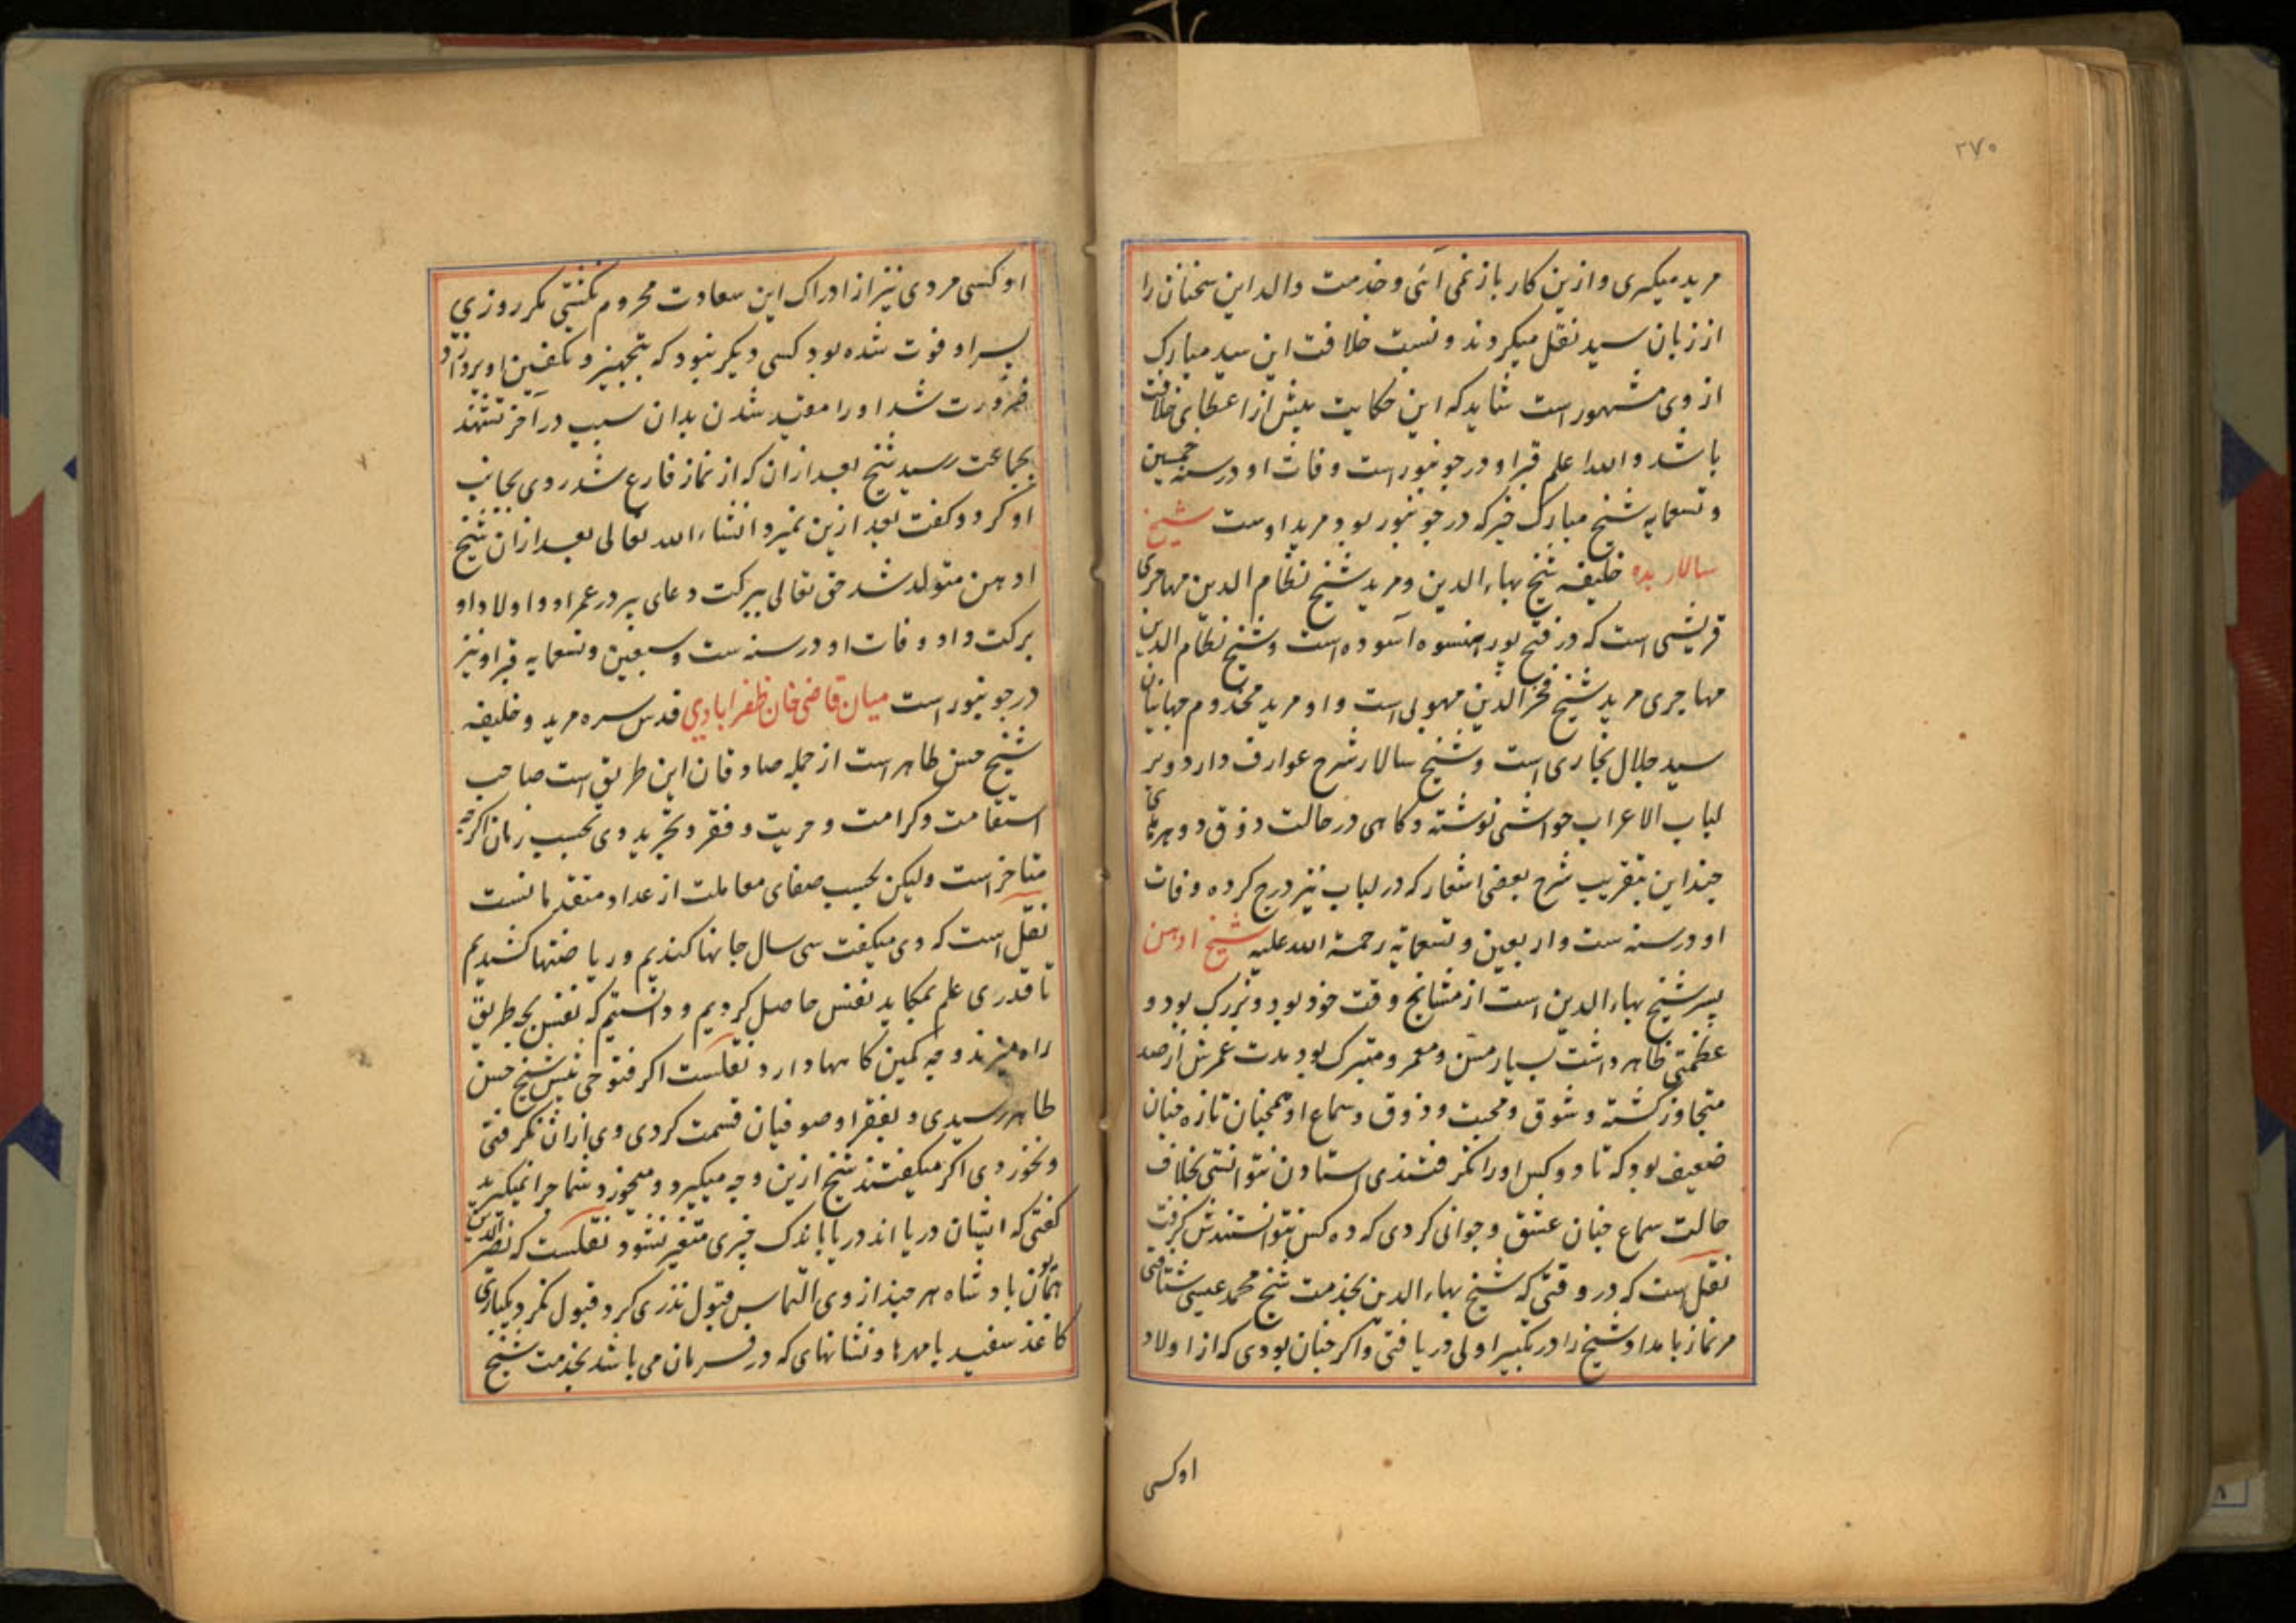 ۲۷۰
مرید میگیری و ازین کار باز نمی آئی و خدمت والد این سخنان را
از زبان سید نقل میکردند و نسبت خلافت این سید مبارک
از وی مشهور است شاید که این حکایت پیش از اعطای خلافت
باشد والله اعلم قبر او در جونپور است وفات او در سنه خمسین
و تسعمایه شیخ مبارک خیر که در جونپور بود مرید اوست شیخ
سالار بده خلیفه شیخ بهاء الدین و مرید شیخ نظام الدین مهاجری
قریشی است که در فتح پور هنسوه آسوده است و شیخ نظام الدین
مهاجری مرید شیخ فخر الدین مهولی است و او مرید مخدوم جهانیان
سید جلال بخاری است و شیخ سالار شرح عوارف دارد و بر
لباب الاعراب حواشی نوشته و کاهی در حالت ذوق دوهرهای
چند این بتقریب شرح بعضی اشعار که در لباب نیز درج کرده وفات
او در سنه ست و اربعین و تسعمایه رحمة الله علیه شیخ ادهن
پسر شیخ بهاء الدین است از مشایخ وقت خود بود و بزرگ بود و
عظمتی ظاهر داشت بسیار مسن و معمر و متبرک بود مدت عمرش از صد
متجاوز کشته و شوق و محبت و ذوق و سماع او همچنان تازه چنان
ضعیف بود که تا دو کس او را نکرفتندی استادن نتوانستی بخلاف
حالت سماع چنان عشق و جوانی کردی که ده کس نتوانستندش کرفت
نقل است که در وقتی که شیخ بهاء الدین بخدمت شیخ محمد عیسی شتافتی
مر نماز بامداد شیخ را در تکبیر اولی دریافتی و اکر چنان بودی که از اولاد
او کسی
او کسی مردی نیز از ادراک این سعادت محروم نکشتی مکر روزی
پسر او فوت شده بود کسی دیکر نبود که بتجهیز و تکفین او پردازد
ضرورت شد او را مقید شدن بدان سبب در آخر تشهد
بجماعت رسید شیخ بعد ازان که از نماز فارغ شد روی بجانب
او کرد و کفت بعد ازین نمیرد انشاء الله تعالی بعد ازان شیخ
ادهن متولد شد حق تعالی ببرکت دعای پیر در عمر او و اولاد او
برکت داد وفات او در سنه ست و سبعین و تسعمایه قبر او نیز
در جونپور است میان قاضی خان ظفرابادی قدس سره مرید و خلیفه
شیخ حسن طاهر است از جمله صادقان این طریق است صاحب
استقامت و کرامت و حریت و فقر و تجرید وی بحسب زمان اکرچه
متاخر است ولیکن بحسب صفای معاملت از عداد متقدمانست
نقل است که وی میکفت سی سال جانها کندیم و ریاضتها کشیدیم
تا قدری علم بمکاید نفس حاصل کردیم و دانستیم که نفس بچه طریق
راه میزند و چه کمین کاهها دارد نقلست اکر فتوحی پیش شیخ حسن
طاهر رسیدی و بفقرا و صوفیان قسمت کردی وی ازان نکرفتی
و نخوردی اکر میکفتند شیخ ازین وجه میکیرد و میخورد شما چرا نمیکیرید
کفتی که ایشان دریا اند دریا باندک چیزی متغیر نشود نقلست که نصیر الدین
همایون بادشاه هر چند از وی التماس قبول نذری کرد قبول نکرد یکباری
کاغذ سفید با مهرها و نشانهای که در فرمان می باشد بخدمت شیخ